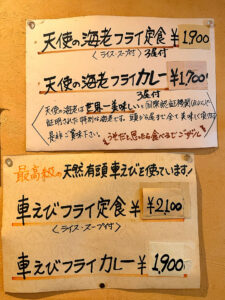 天使の海老フライ定食 ¥1,900
(ライス・スープ付) 3尾付
天使の海老フライカレー ¥1,700
3尾付
天使の海老は世界一美味しいと国際
証明された特別な海老です。頭から尾まで全て美味しく
是非ご賞味下さい。
うそだと思ったら食べてみてごらん
最高級の天然有頭車えびを使っています!
車えびフライ定食 ¥ ¥2,100
(ライス・スープ付)
車えびフライカレー ¥ 1,900